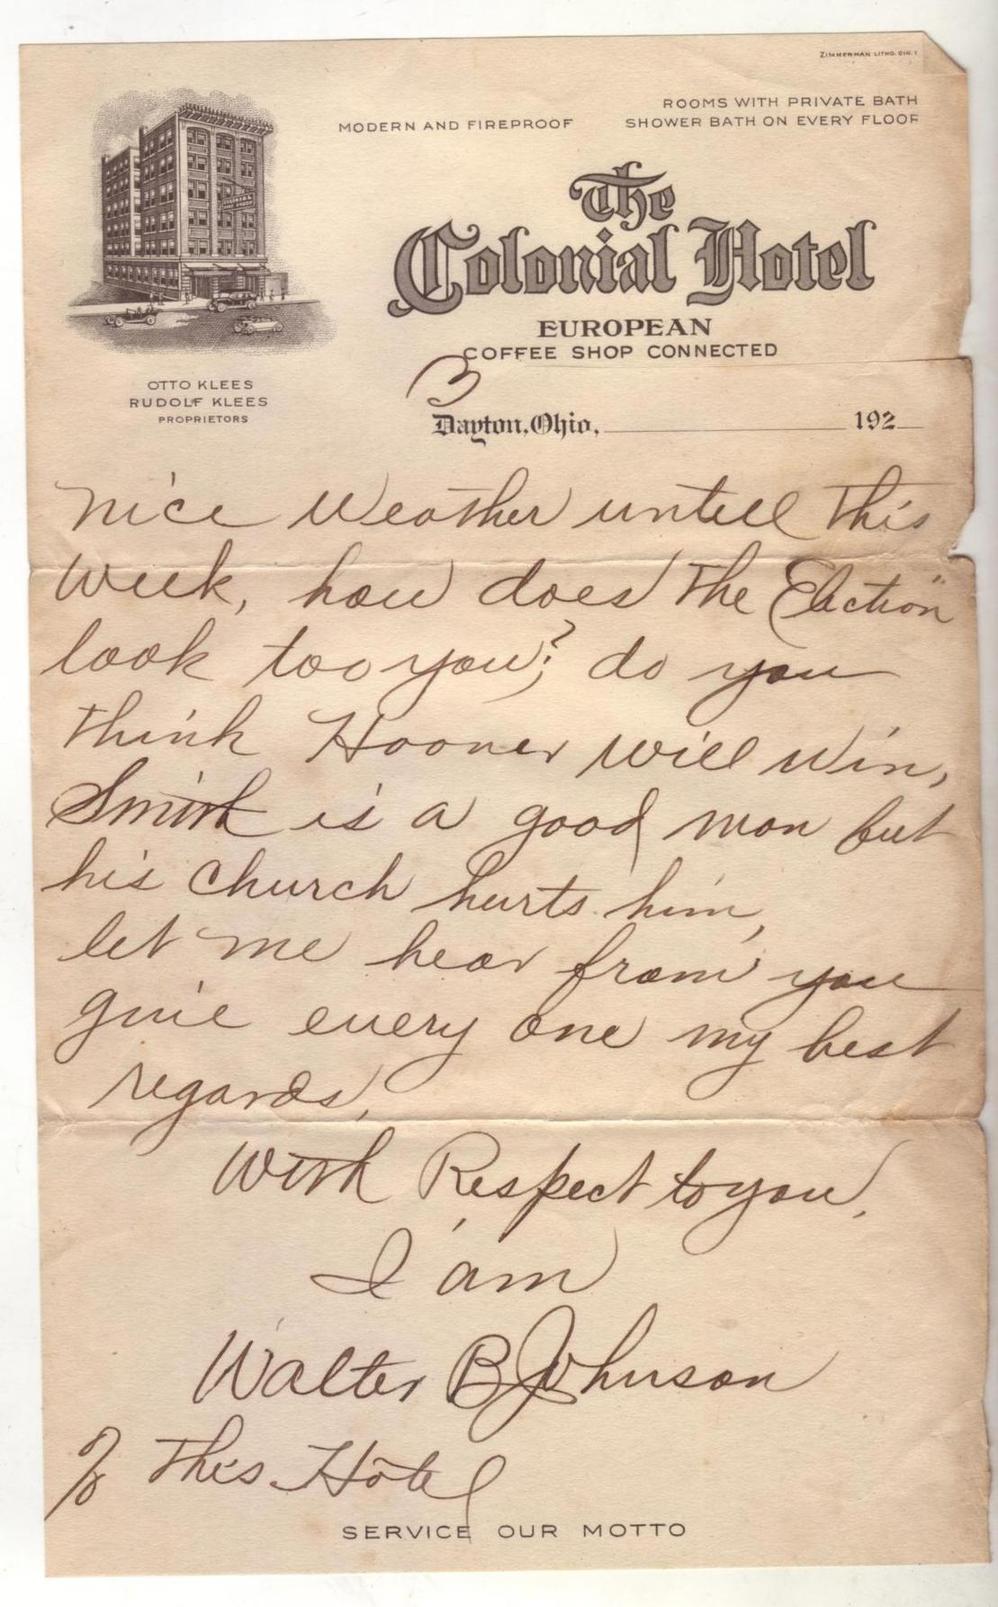 ZIMMERMAN LITHO. CIN. 1
ROOMS WITH PRIVATE BATH
MODERN AND FIREPROOF SHOWER BATH ON EVERY FLOOR
The
Colonial Hotel
EUROPEAN
COFFEE SHOP CONNECTED
OTTO KLEES
RUDOLF KLEES
PROPRIETORS
3
Dayton, Ohio, 192
nice weather untill this
week, how does the Election
look too you? do you
think Hoover will win,
Smith is a good man but
his church hurts him,
let me hear from you
give every one my best
regards,
With Respect to you,
I am
Walter B Johnson
% This Hotel
SERVICE OUR MOTTO